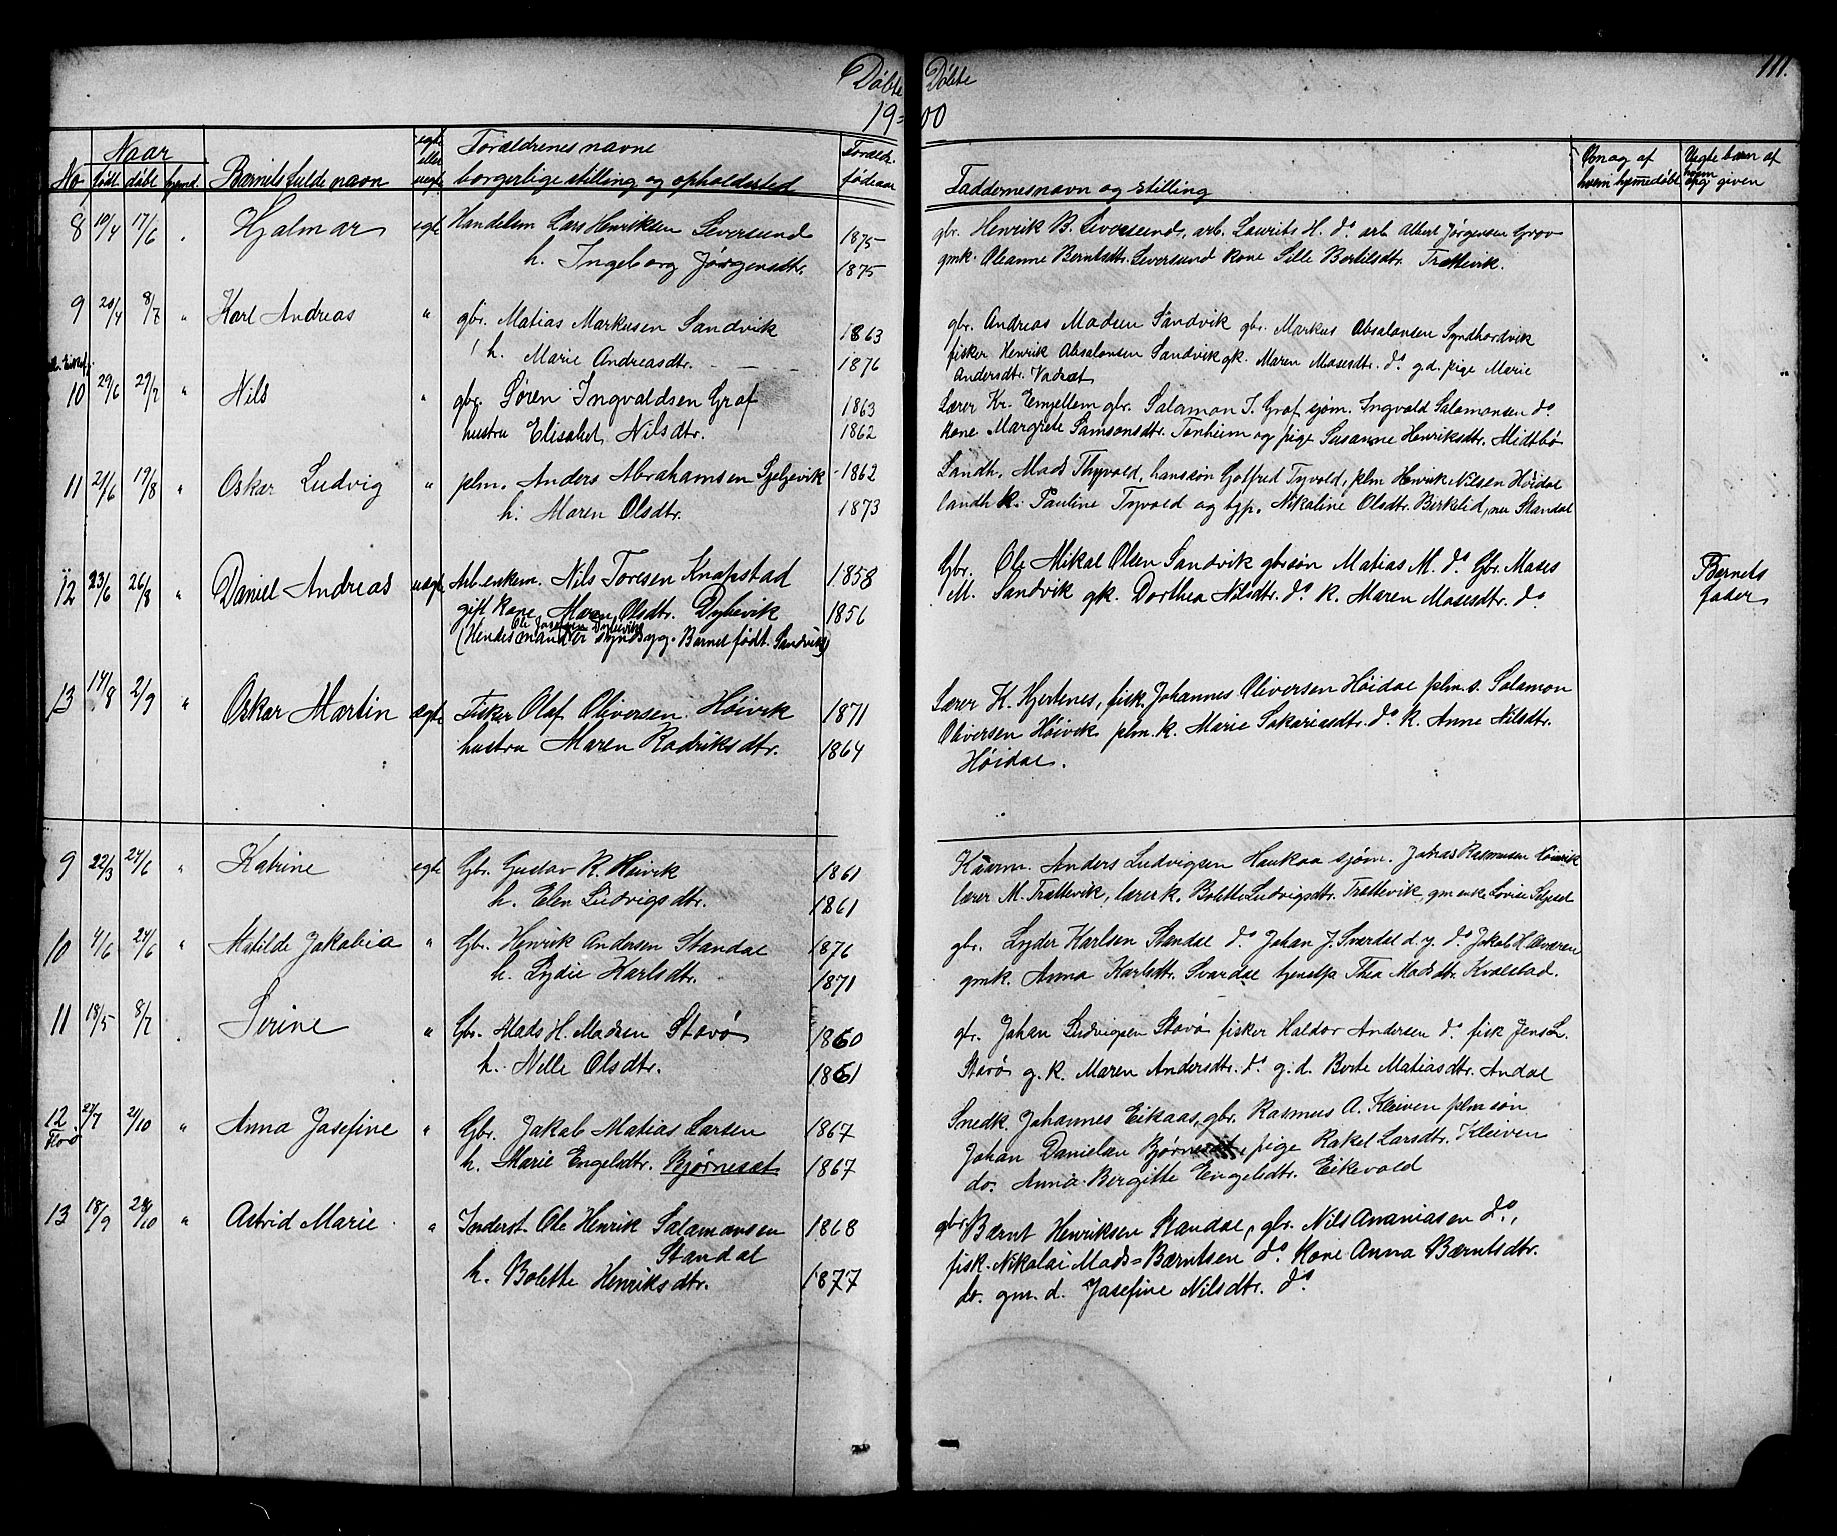 Døbte
Døbte
111.
19=
00
Naar
egte eller uegte
Forældrenes navne
Foræld.
No
født
døbt
hjemd
Barnets fulde navn
borgerlige stilling og opholdssted
fødaar
Faddernes navn og stilling
Om og af hvem hjemmedøbt
Uegte barn af hvem opg given
8 10/4 17/6 Hjalmar egte Handelsm Lars Henriksen Leversund 1875
h. Ingeborg Jørgensdtr. 1875
gbr. Henrik B. Leversund, arb. Laurits H. do arb Albert Jørgensen Grov
gmk. Oleanne Berntsdtr. Leversund kone Sille Bertilsdtr. Trættevik.
9 20/4 8/7 " Karl Andreas " gbr. Matias Markusen Sandvik 1863
h. Marie Andreasdtr. - - - 1876
gbr. Andreas Madsen Sandvik gbr. Markus Absalonsen Syndhordvik
fisker Henrik Absalonsen Sandvik gk. Maren Mosesdtr. do g.d. pige Marie
Andersdtr. Vadsæt
10 29/6 29/7 " Nils " gbr. Søren Ingvaldsen Graf 1863
hustru Elisabet Nilsdtr. 1862
Lærer Kr. Emjellem gbr. Salamon I. Graf sjøm. Ingvald Salamonsen do
kone Margrete Samsonsdtr. Tonheim og pige Susanne Henriksdtr. Midtbø
11 21/6 19/8 " Oskar Ludvig " plm. Anders Abrahamsen Gjeljevik 1862
h. Maren Olsdtr. 1873
Landh. Mads Thyvold, hanssøn Gotfred Tyvold, plm Henrik Nilsen Høidal
landh k. Pauline Tyvold og tjp. Nikoline Olsdtr. Birkelid, nu Standal
12 23/6 26/8 " Daniel Andreas uægte Arb. enkem. Nils Toresen Knapstad 1858
gift kone Maren Olsdtr. Dybevik 1856
Ole Josefsen Dybevik
(Hendes mand er sindssyg. Barnet født. Sandvik)
Gbr. Ole Mikal Olsen Sandvik gbrsøn Matias M. do Gbr. Moses
M. Sandvik gk. Dorthea Nilsdtr. do k. Maren Mosesdtr. do
Barnets fader
13 14/8 2/9 " Oskar Martin ægte Fisker Olaf Oliversen Høivik 1871
hustru Maren Radriksdtr. 1864
Lærer K. Hjertenes, fisk. Johannes Oliversen Høidal plm.s. Salamon
Oliversen Høivik plm. k. Marie Sakariasdtr. do k. Anne Nilsdtr.
Høidal.
9 22/3 24/6 " Katrine egte Gbr. Gustav R. Høivik 1861
h. Elen Ludvigsdtr. 1861
Anders Ludvigsen Haukaa sjøm. Rasmusen Høivik
lærer M. Trættevik, lærer k. Bolette Ludvigsdtr. Trættevik, gm enke Lovise
10 4/6 24/6 " Matilde Jakobia " Gbr. Henrik Andersen Standal 1876
h. Lydie Karlsdtr. 1871
gbr. Lyder Karlsen Standal do Johan J. Svardal d.y. do Jakob H.
gmk. Anna Karlsdtr. Svardal tjenestp Thea Madsdtr. Kvalstad.
11 18/5 8/7 Serine " Gbr. Mads H. Madsen Stavø 1860
h. Nille Olsdtr. 1861
gbr. Johan Ludvigsen Stavø fisker Haldor Andersen do fisk Jens L.
Stavø g.k. Maren Andersdtr. do g.d. Berte Matiasdtr. Andal
12 27/7 21/10 " Anna Josefine " Gbr. Jakob Matias Larsen 1867
Florø
h. Marie Engelsdtr. Bjørneset 1867
Snedk. Johannes Eikaas, gbr. Rasmus A. Kleiven plm søn
Johan Danielsen Bjørneset, pige Rakel Larsdtr. Kleiven
do. Anna Bergitte Engelsdtr. Eikevold
13 18/9 28/10 " Astrid Marie " Inderst. Ole Henrik Salamonsen 1868
Standal
h. Bolette Henriksdtr. 1877
gbr Bærnt Henriksen Standal, gbr. Nils Ananiasen do,
fisk. Nikolai Mads=Bærntsen do kone Anna Bærntsdtr.
do. gm. d. Josefine Nilsdtr. do